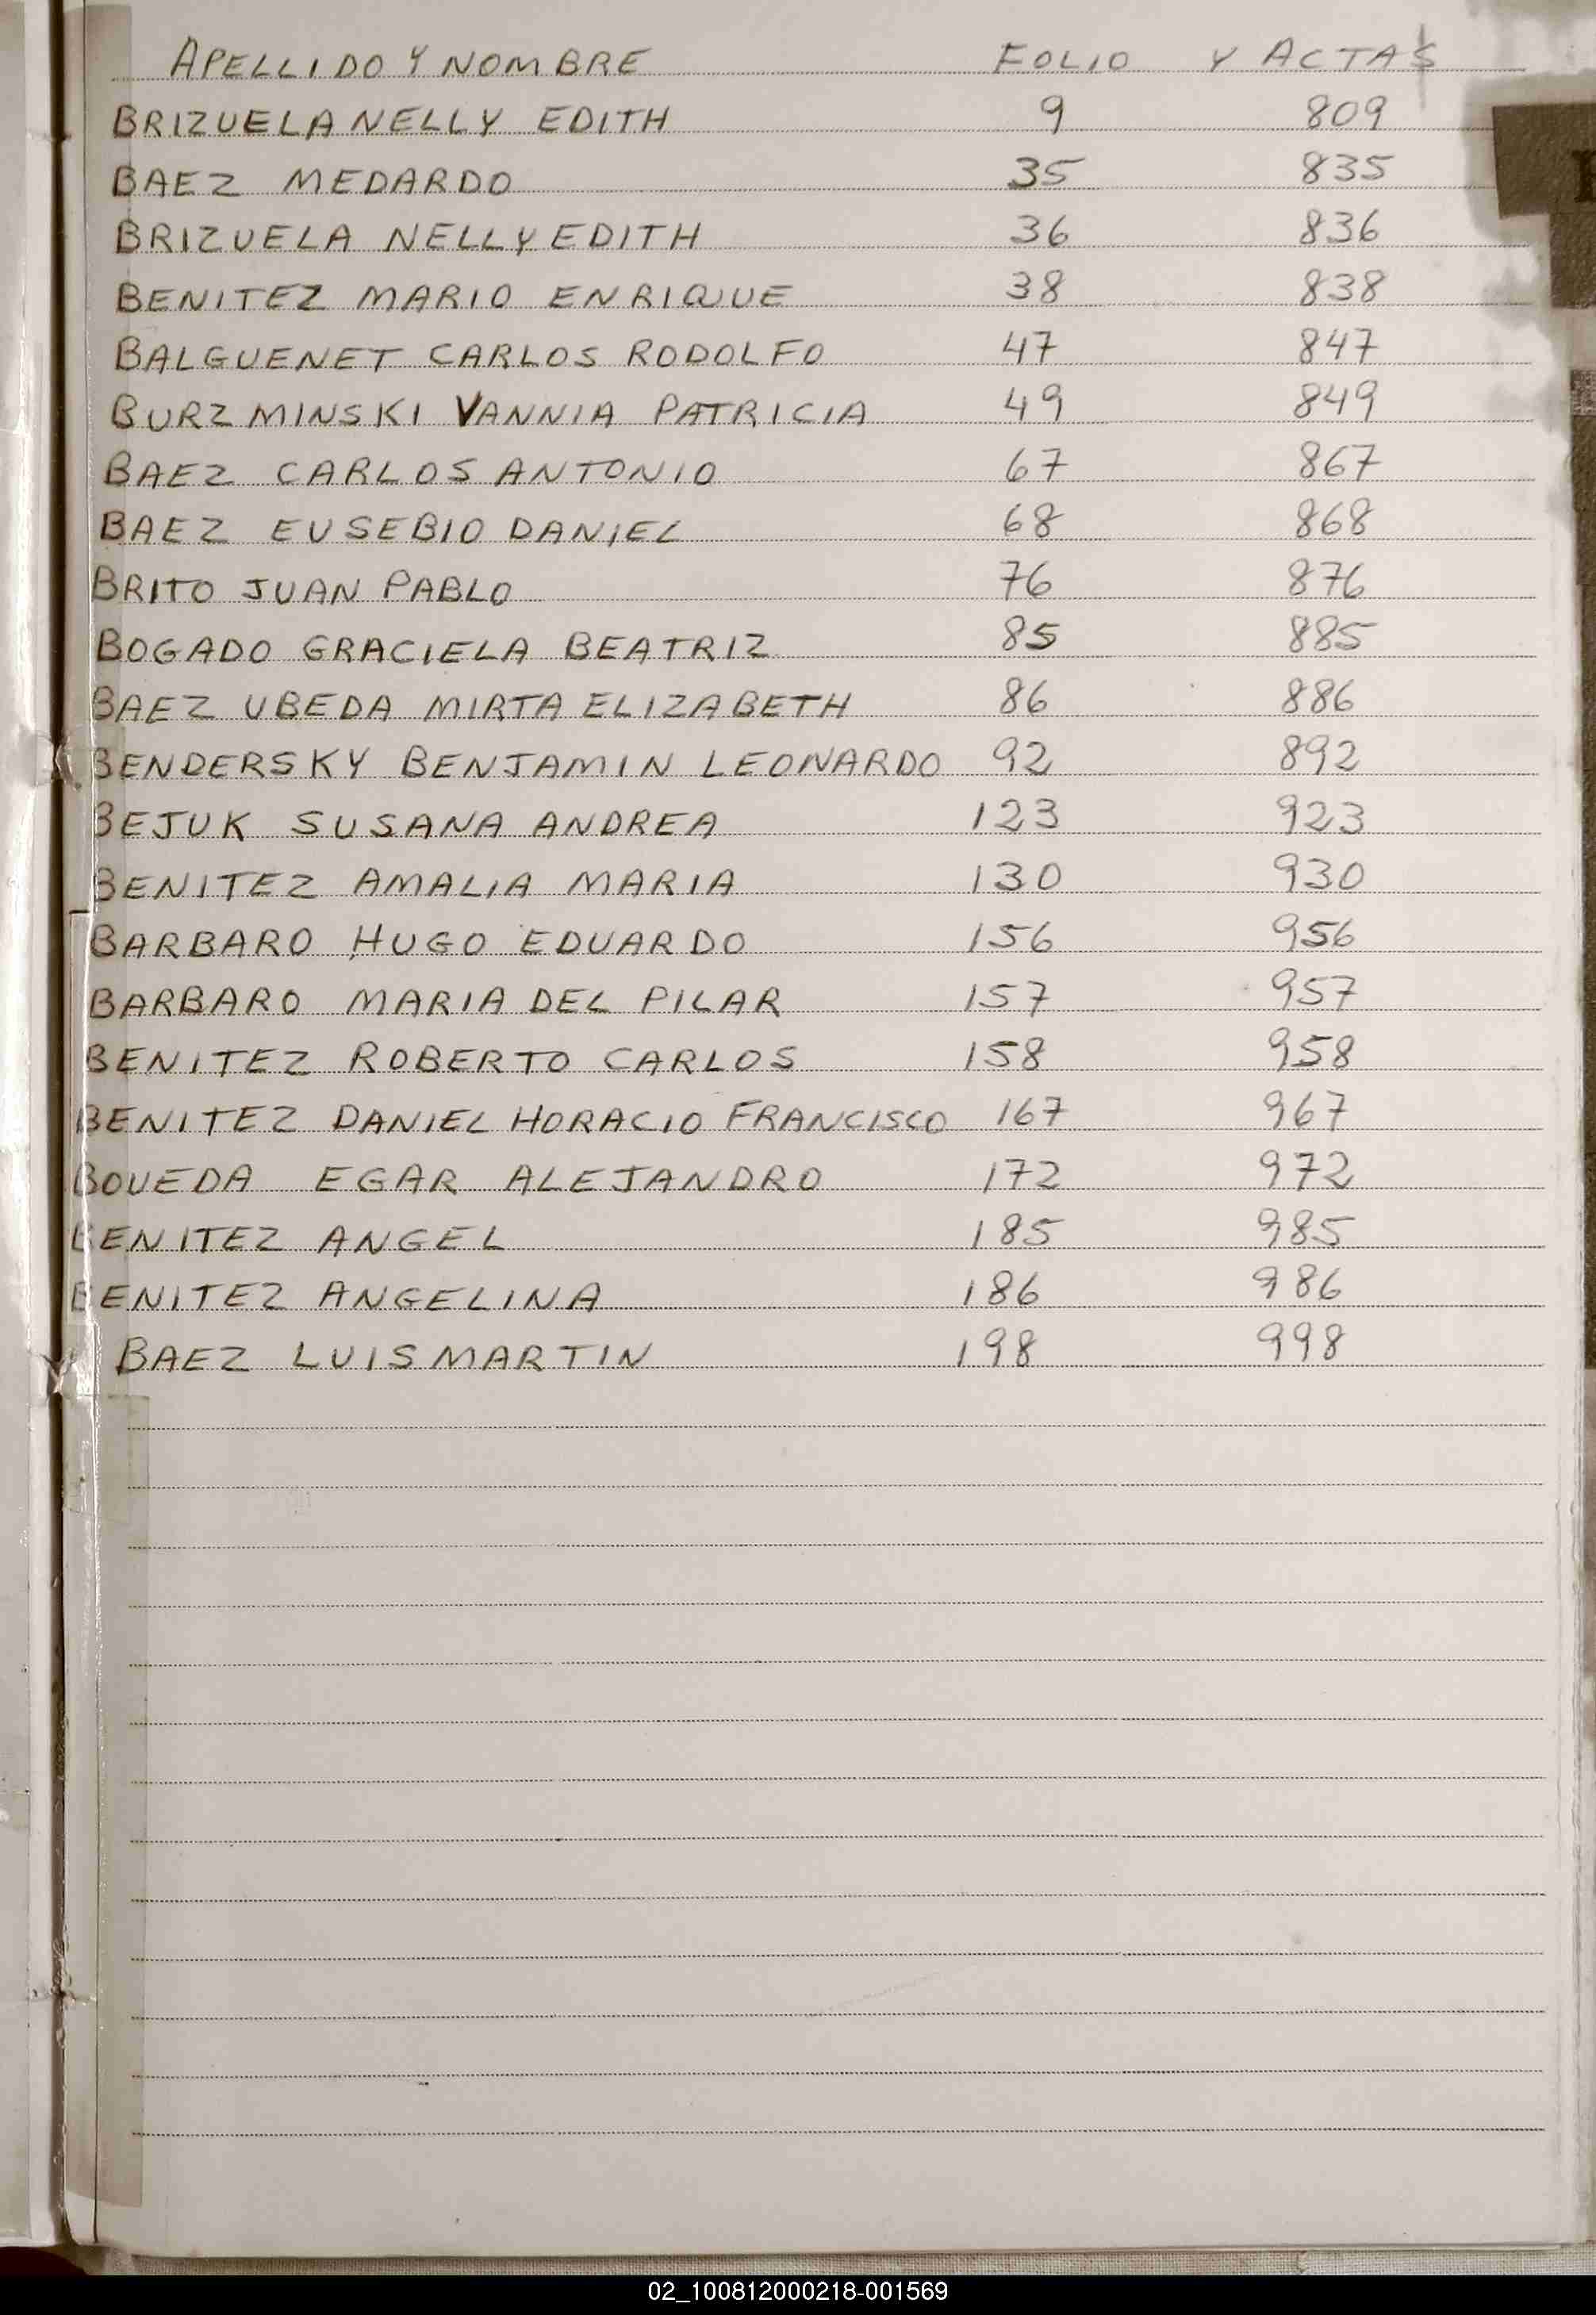 APELLIDO Y NOMBRE FOLIO Y ACTAS
BRIZUELA NELLY EDITH 9 809
BAEZ MEDARDO 35 835
BRIZUELA NELLY EDITH 36 836
BENITEZ MARIO ENRIQUE 38 838
BALGUENET CARLOS RODOLFO 47 847
BURZMINSKI VANNIA PATRICIA 49 849
BAEZ CARLOS ANTONIO 67 867
BAEZ EUSEBIO DANIEL 68 868
BRITO JUAN PABLO 76 876
BOGADO GRACIELA BEATRIZ 85 885
BAEZ UBEDA MIRTA ELIZABETH 86 886
BENDERSKY BENJAMIN LEONARDO 92 892
BEJUK SUSANA ANDREA 123 923
BENITEZ AMALIA MARIA 130 930
BARBARO HUGO EDUARDO 156 956
BARBARO MARIA DEL PILAR 157 957
BENITEZ ROBERTO CARLOS 158 958
BENITEZ DANIEL HORACIO FRANCISCO 167 967
BOUEDA EGAR ALEJANDRO 172 972
BENITEZ ANGEL 185 985
BENITEZ ANGELINA 186 986
BAEZ LUIS MARTIN 198 998
02_100812000218-001569